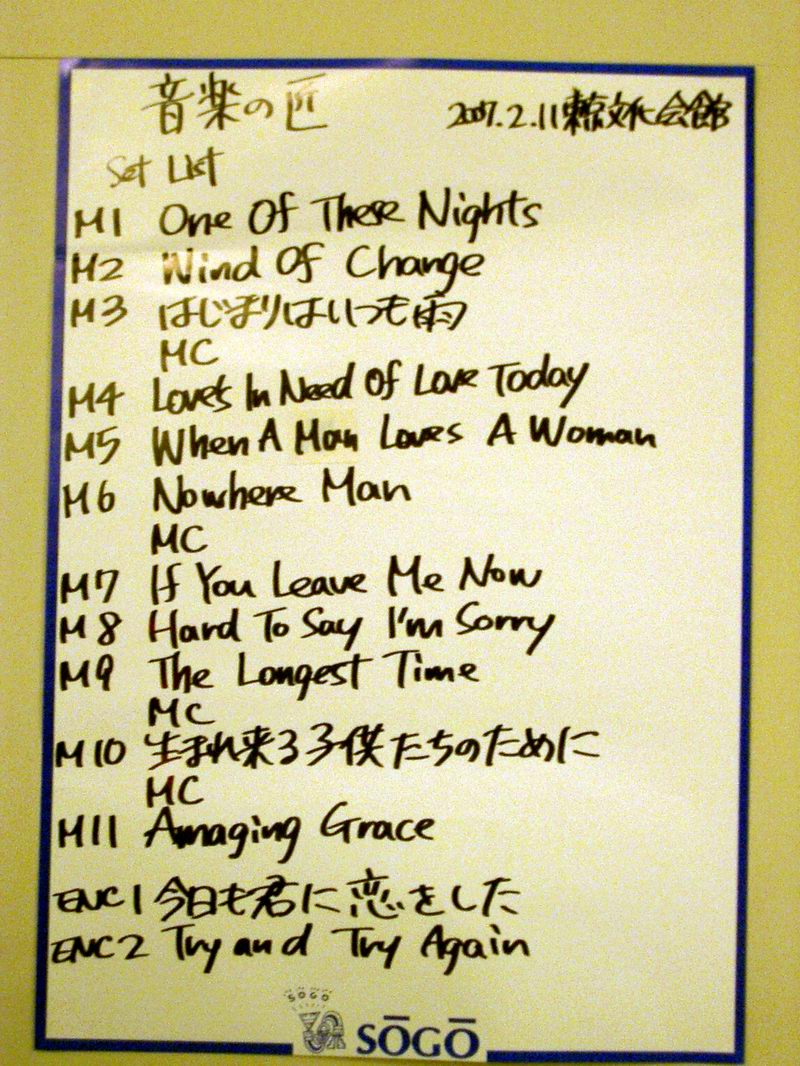 音楽の匠 2007.2.11東京文化会館
Set List
M1 One Of These Nights
M2 Wind Of Change
M3 はじまりはいつも雨
MC
M4 Love's In Need Of Love Today
M5 When A Man Loves A Woman
M6 Nowhere Man
MC
M7 If You Leave Me Now
M8 Hard To Say I'm Sorry
M9 The Longest Time
MC
M10 生まれ来る子供たちのために
MC
M11 Amaging Grace
ENC1 今日も君に恋をした
ENC2 Try and Try Again
SOGO
SŌGŌ